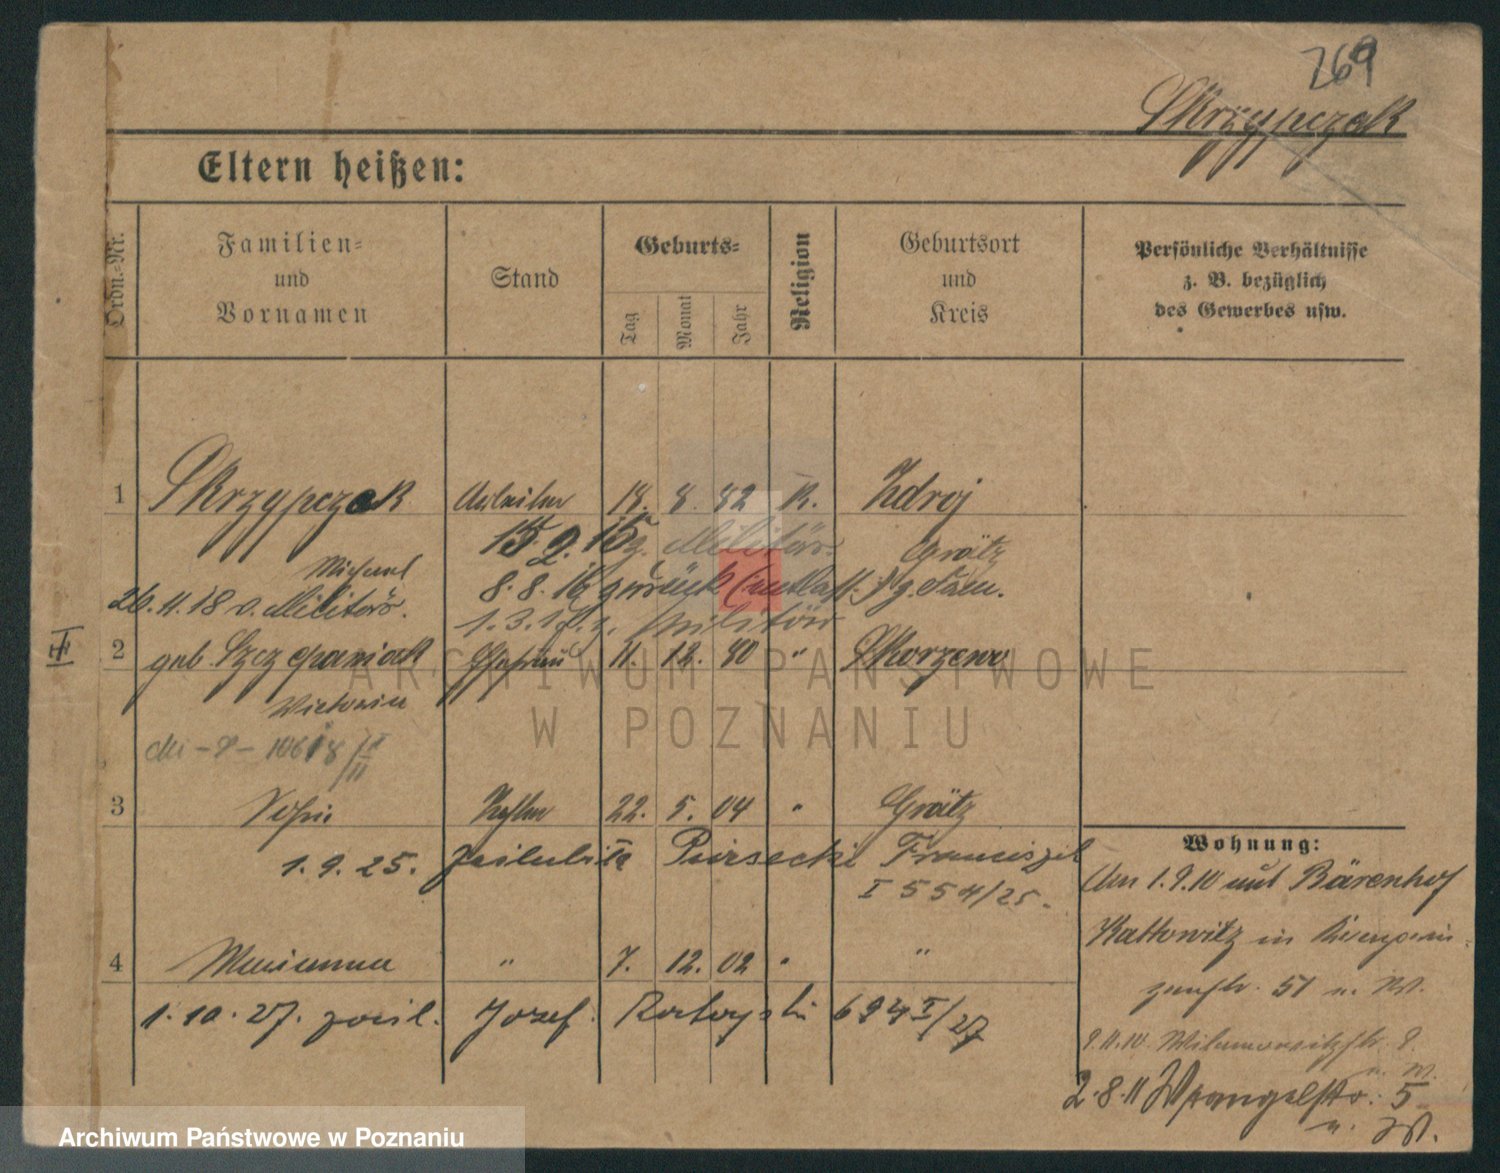 269
Skrzypczak
Eltern heißen:
Ordn.-Nr.
Familien- und Vornamen
Stand
Geburts-
Tag
Monat
Jahr
Religion
Geburtsort und Kreis
Persönliche Verhältnisse z. B. bezüglich des Gewerbes usw.
1 Skrzypczak Arbeiter 18. 8. 82 K. Zdroj
15. 2. 15 z. Militär. Grätz
Michael
8. 8. 16 zurück (entlass.) z. Fam.
26.11.18 v. Militär.
1.3.17. z. Militär
II
2 geb. Szczepaniak Ehefrau 11. 12. 80 " Skorzewo
Victoria
3 Sofie Tochter 22. 5. 04 " Grätz
1.9.25. Franciszek
I 554/25.
4 Marianna " 7. 12. 02 " "
1.10.27. Jozef Ratajski 694 I/27
Wohnung:
Am 1.9.10 aus Bärenhof
Kattowitz in
51 u. W.
9.11.10 9.
u. W.
2.8.11 Wrangelstr. 5
u. W.
ARCHIWUM PAŃSTWOWE
W POZNANIU
Archiwum Państwowe w Poznaniu